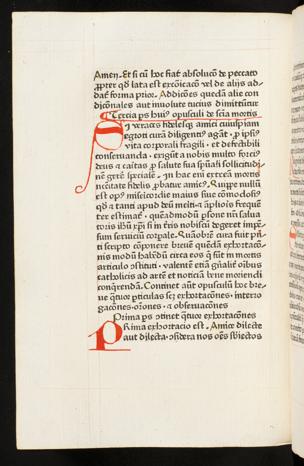 Amen. Et si cũ hoc fiat absolucõ de peccato
ꝓpter qđ lata est excõicacõ vel de alijs ad-
dat̃ forma prior. Addicões quedã alie con
dicõnales aut inuolute tucius dimittũtur
Tercia ps huiꝰ opusculi de scia mortis
Si veraces fidelesqꝫ amici cuiuspiam
egroti curã diligentiꝰ agãt ꝓ ipsiꝰ
vita corporali fragili et defectibili
conseruanda exigit a nobis multo forciꝰ
deus et caritas ꝓ salute sua spũali sollicitudi-
nẽ gerẽ spẽialẽ In hac em̃ extrema mortis
necitate fidelis ꝓbatur amicꝰ. Quippe nullũ
est opꝰ misericordie maius siue cõmodosiꝰ
qđ a tanti apud deũ meriti et ãpliois freque
ter estimat̃ quẽadmodũ ꝑsone nr̃i salua
toris ihũ xp̃i si in terris nobiscũ degeret impẽ-
sum seruiciũ corpale. Quãobrẽ cura fuit pñ-
ti scripto cõponere breuẽ quedã exhortacõ-
nis modũ habẽdũ circa eos qͥ sũt in mortis
articulo ↄstituti valentẽ etiã gñalit̃ oĩbus
catholicis ad artẽ et noticiã bene moriendi
conqrendã. Continet aũt opusculũ hoc bre-
ue qͣtuor pticulas scꝫ exhortacões interro
gacões oĩones et obseruacões
Prima ps ↄtinet qͣtuor exhortacões
Prima exhortacio est. Amice dilecte
aut dilecta ↄsidera nos oẽs sbiectos